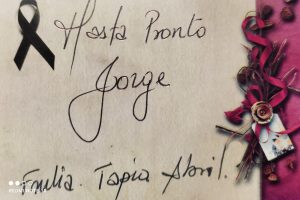 Hasta Pronto
Jorge
Emilia. Tapia Abril.